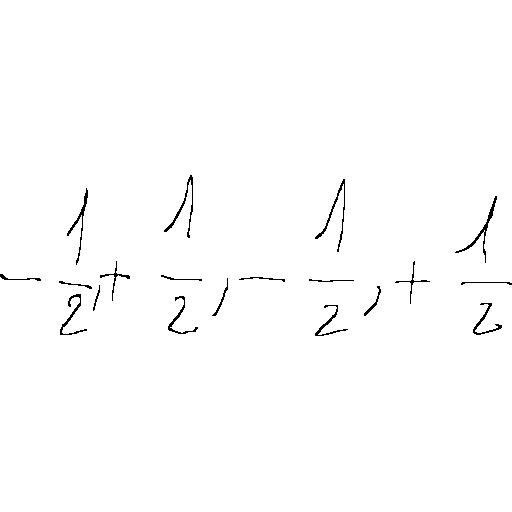 -\frac{1}{2},+\frac{1}{2},-\frac{1}{2},+\frac{1}{2}